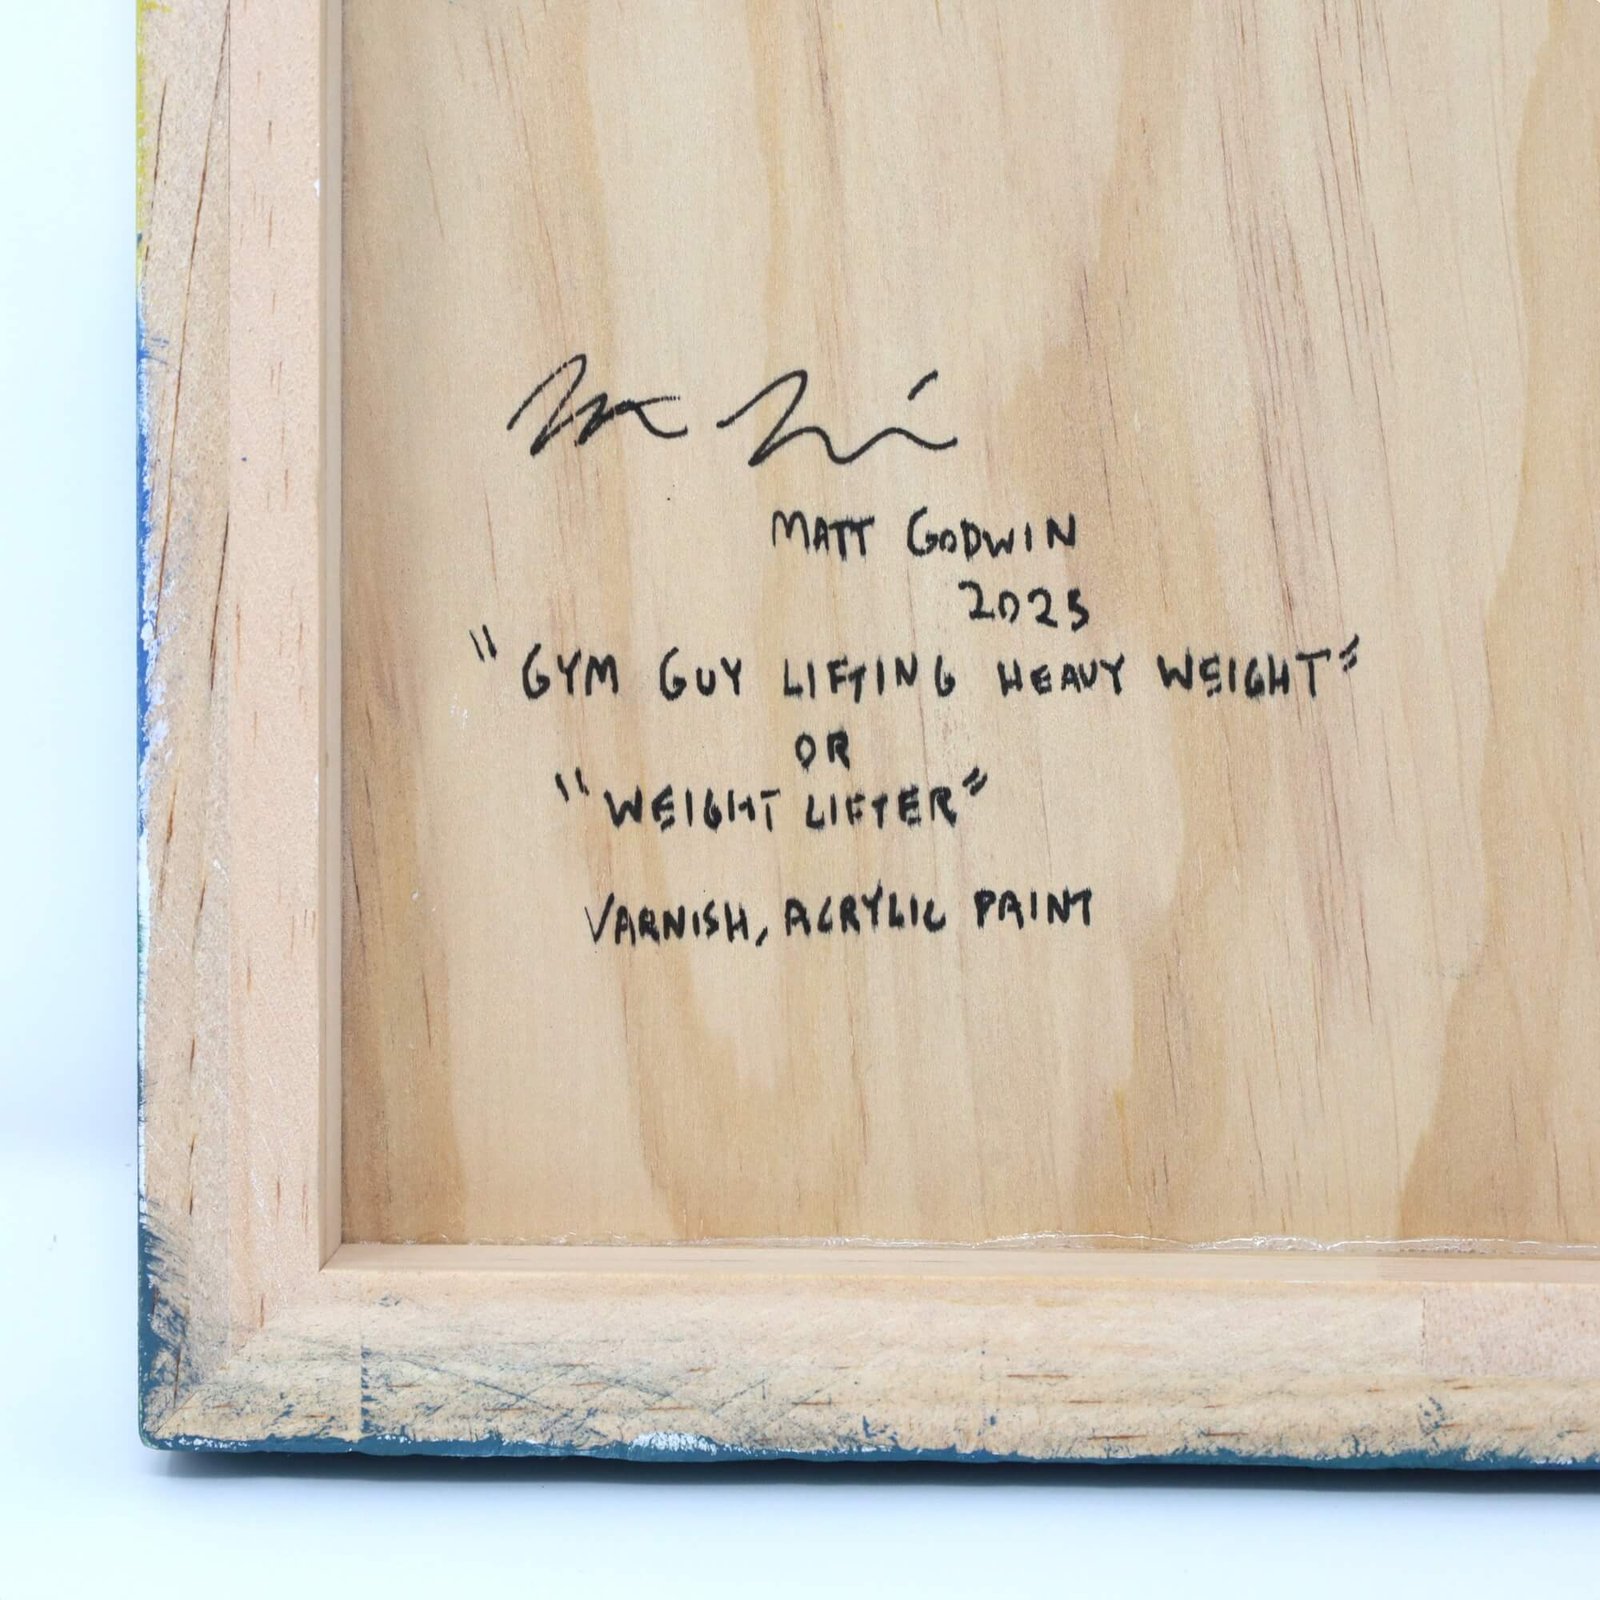 MATT GODWIN
2025
"GYM GUY LIFTING HEAVY WEIGHT"
OR
"WEIGHT LIFTER"
VARNISH, ACRYLIC PAINT